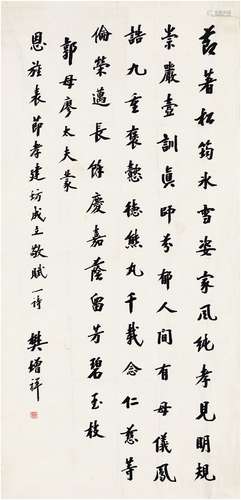 節著松筠冰雪姿家風純孝見明規
崇嚴壼訓真郁人間有母儀鳳
誥九重褒懿德熊丸千載念仁慈等
倫榮邁長餘慶嘉蔭留芳碧玉枝
郭母廖太夫人蒙
恩旌表節孝建坊成立敬賦一詩 樊增祥